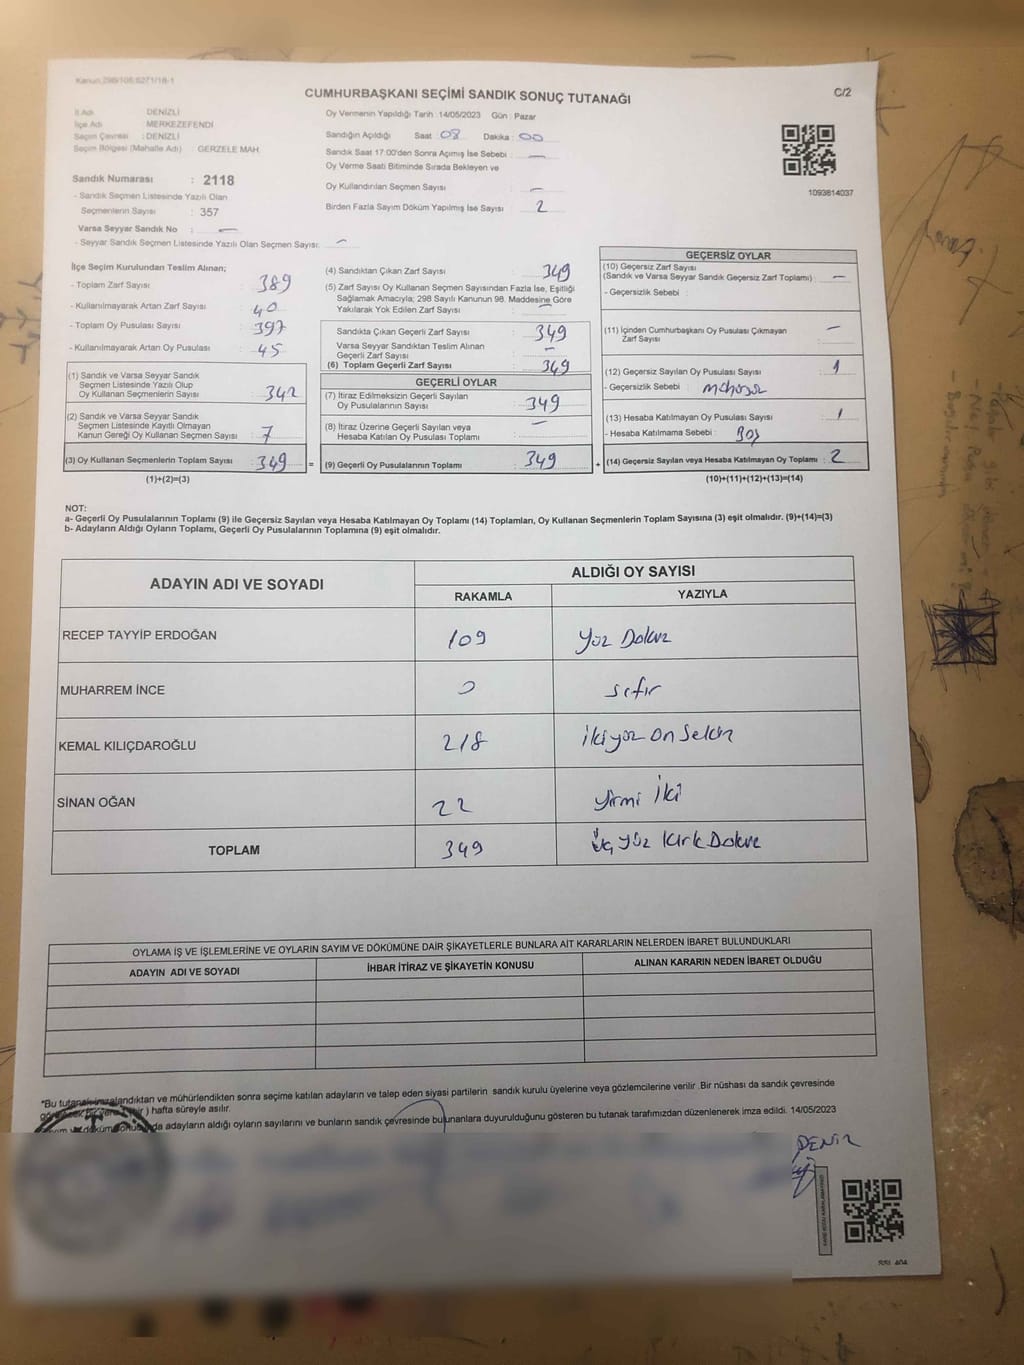 Kanun 298/105;6271/18-1
CUMHURBAŞKANI SEÇİMİ SANDIK SONUÇ TUTANAĞI
C/2
İl Adı DENİZLİ
İlçe Adı MERKEZEFENDİ
Seçim Çevresi : DENİZLİ
Seçim Bölgesi (Mahalle Adı) : GERZELE MAH.
Oy Vermenin Yapıldığı Tarih :14/05/2023 Gün : Pazar
Sandığın Açıldığı Saat 08 Dakika : 00
Sandık Saat 17:00'den Sonra Açılmış İse Sebebi : —
Oy Verme Saati Bitiminde Sırada Bekleyen ve
Oy Kullandırılan Seçmen Sayısı : —
Birden Fazla Sayım Döküm Yapılmış İse Sayısı : 2
1093814037
Sandık Numarası : 2118
- Sandık Seçmen Listesinde Yazılı Olan
Seçmenlerin Sayısı : 357
Varsa Seyyar Sandık No : —
- Seyyar Sandık Seçmen Listesinde Yazılı Olan Seçmen Sayısı: —
İlçe Seçim Kurulundan Teslim Alınan;
- Toplam Zarf Sayısı : 389
- Kullanılmayarak Artan Zarf Sayısı : 40
- Toplam Oy Pusulası Sayısı : 397
- Kullanılmayarak Artan Oy Pusulası : 45
(1) Sandık ve Varsa Seyyar Sandık
Seçmen Listesinde Yazılı Olup
Oy Kullanan Seçmenlerin Sayısı : 342
(2) Sandık ve Varsa Seyyar Sandık
Seçmen Listesinde Kayıtlı Olmayan
Kanun Gereği Oy Kullanan Seçmen Sayısı : 7
(3) Oy Kullanan Seçmenlerin Toplam Sayısı : 349
(1)+(2)=(3)
(4) Sandıktan Çıkan Zarf Sayısı : 349
(5) Zarf Sayısı Oy Kullanan Seçmen Sayısından Fazla İse, Eşitliği
Sağlamak Amacıyla; 298 Sayılı Kanunun 98. Maddesine Göre
Yakılarak Yok Edilen Zarf Sayısı : —
Sandıkta Çıkan Geçerli Zarf Sayısı : 349
Varsa Seyyar Sandıktan Teslim Alınan
Geçerli Zarf Sayısı : —
(6) Toplam Geçerli Zarf Sayısı : 349
GEÇERLİ OYLAR
(7) İtiraz Edilmeksizin Geçerli Sayılan
Oy Pusulalarının Sayısı : 349
(8) İtiraz Üzerine Geçerli Sayılan veya
Hesaba Katılan Oy Pusulası Toplamı : —
= (9) Geçerli Oy Pusulalarının Toplamı : 349
GEÇERSİZ OYLAR
(10) Geçersiz Zarf Sayısı
(Sandık ve Varsa Seyyar Sandık Geçersiz Zarf Toplamı) : —
- Geçersizlik Sebebi :
(11) İçinden Cumhurbaşkanı Oy Pusulası Çıkmayan
Zarf Sayısı : —
(12) Geçersiz Sayılan Oy Pusulası Sayısı : 1
- Geçersizlik Sebebi : mühürsüz
(13) Hesaba Katılmayan Oy Pusulası Sayısı : 1
- Hesaba Katılmama Sebebi : Boş
+ (14) Geçersiz Sayılan veya Hesaba Katılmayan Oy Toplamı : 2
(10)+(11)+(12)+(13)=(14)
NOT:
a- Geçerli Oy Pusulalarının Toplamı (9) ile Geçersiz Sayılan veya Hesaba Katılmayan Oy Toplamı (14) Toplamları, Oy Kullanan Seçmenlerin Toplam Sayısına (3) eşit olmalıdır. (9)+(14)=(3)
b- Adayların Aldığı Oyların Toplamı, Geçerli Oy Pusulalarının Toplamına (9) eşit olmalıdır.
ADAYIN ADI VE SOYADI ALDIĞI OY SAYISI
RAKAMLA YAZIYLA
RECEP TAYYİP ERDOĞAN 109 Yüz Dokuz
MUHARREM İNCE 0 sıfır
KEMAL KILIÇDAROĞLU 218 İkiyüz On Sekiz
SİNAN OĞAN 22 Yirmi İki
TOPLAM 349 Üç Yüz Kırk Dokuz
OYLAMA İŞ VE İŞLEMLERİNE VE OYLARIN SAYIM VE DÖKÜMÜNE DAİR ŞİKAYETLERLE BUNLARA AİT KARARLARIN NELERDEN İBARET BULUNDUKLARI
ADAYIN ADI VE SOYADI İHBAR İTİRAZ VE ŞİKAYETİN KONUSU ALINAN KARARIN NEDEN İBARET OLDUĞU
*Bu tutanak imzalandıktan ve mühürlendikten sonra seçime katılan adayların ve talep eden siyasi partilerin sandık kurulu üyelerine veya gözlemcilerine verilir .Bir nüshası da sandık çevresinde
hafta süreyle asılır.
adayların aldığı oyların sayılarını ve bunların sandık çevresinde bulunanlara duyurulduğunu gösteren bu tutanak tarafımızdan düzenlenerek imza edildi. 14/05/2023
DENİZ